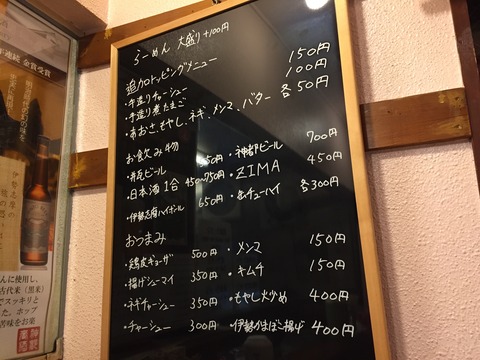 らーめん 大盛り+100円
追加トッピングメニュー
・手造りチャーシュー 150円
・手造り煮たまご 100円
・あおさ、もやし、ネギ、メンマ、バター 各50円
お飲み物
・瓶ビール 550円
・日本酒1合 450〜750円
・伊勢志摩ハイボール 650円
・神都ビール 700円
・ZIMA 450円
・缶チューハイ 各300円
おつまみ
・鶏皮ギョーザ 500円
・揚げシューマイ 350円
・ネギチャーシュー 350円
・チャーシュー 300円
・メンマ 150円
・キムチ 150円
・もやし炒め 400円
・伊勢かまぼこ揚げ 400円
金賞受賞
古代米（黒米）
でスッキリと
した。ホップ
苦味をお楽